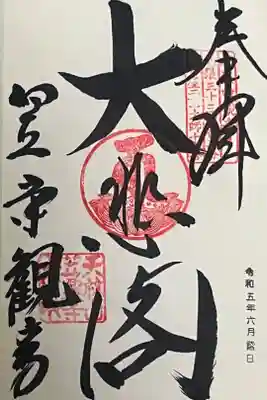 奉拝
大悲閣
笠寺観音
令和五年六月吉日